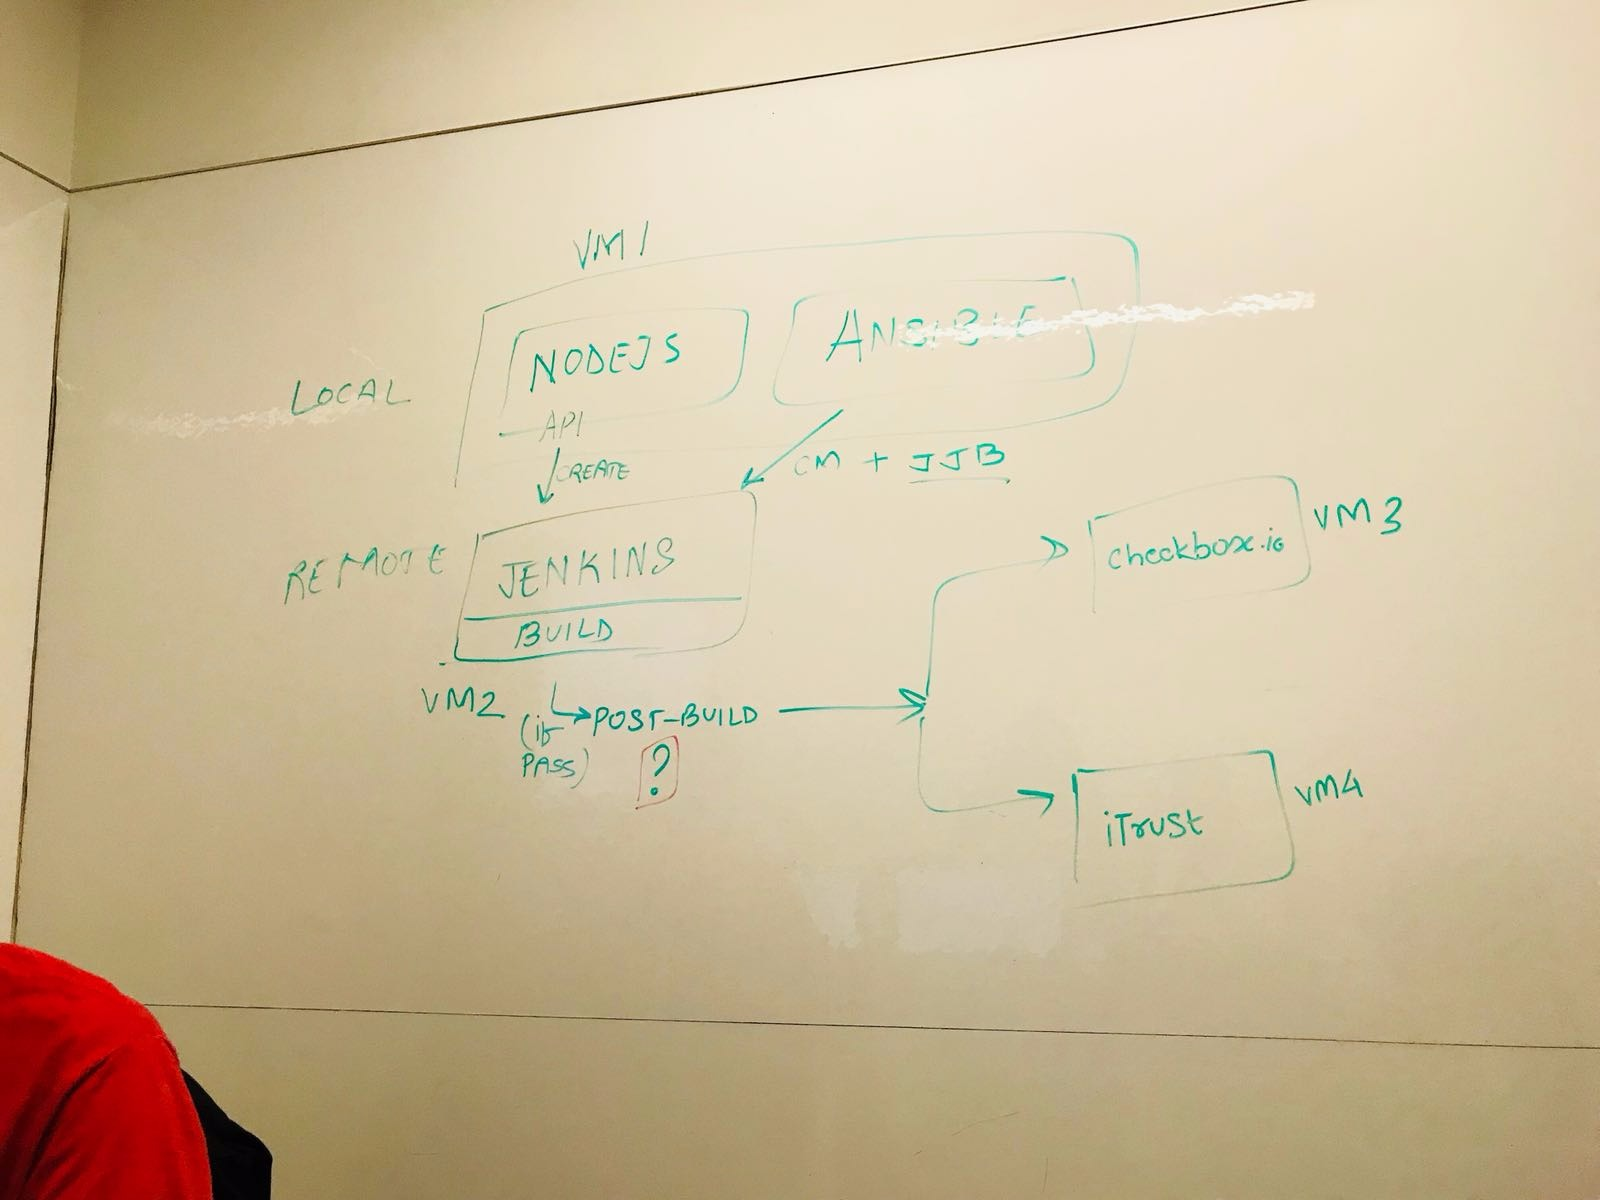 VM1
NODEJS
ANSIBLE
LOCAL
API
CREATE
CM + JJB
REMOTE
JENKINS
BUILD
VM2
(if PASS)
POST-BUILD
?
checkbox.io
VM3
iTrust
VM4